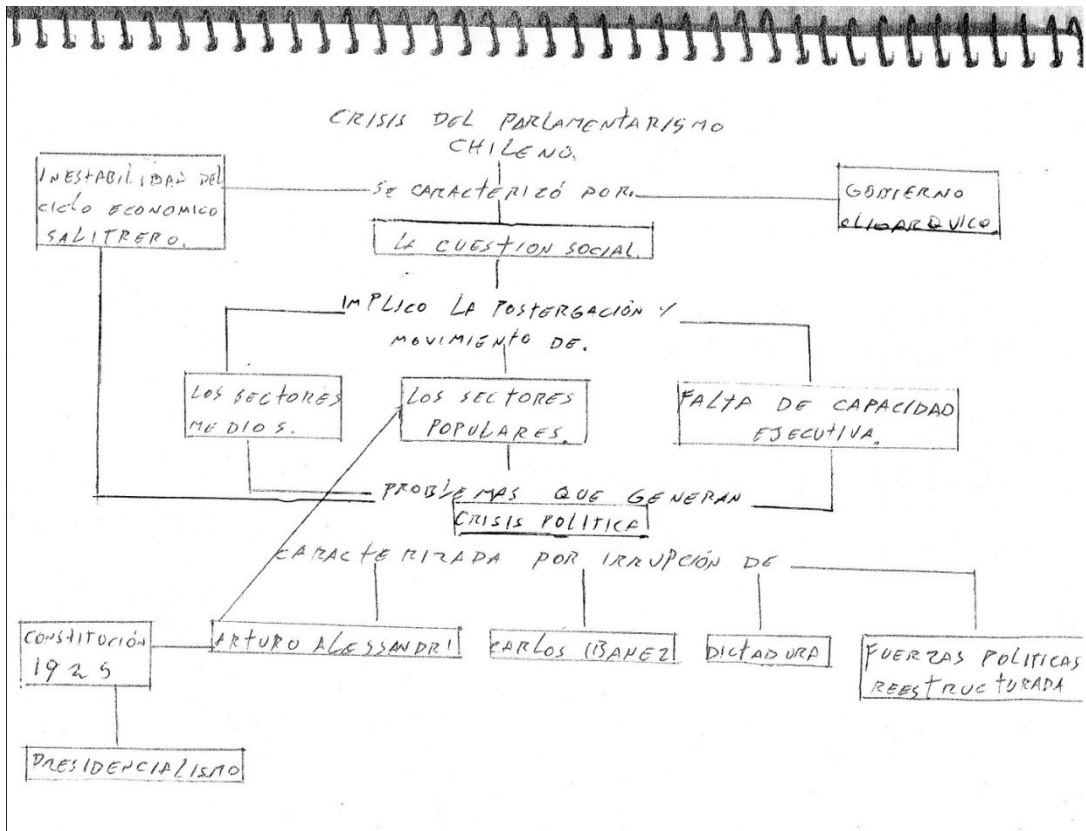 CRISIS DEL PARLAMENTARISMO
CHILENO.
INESTABILIDAD DEL
CICLO ECONOMICO
SALITRERO.
SE CARACTERIZÓ POR.
GOBIERNO
OLIGARQUICO.
LA CUESTION SOCIAL.
IMPLICO LA POSTERGACIÓN Y
MOVIMIENTO DE.
LOS SECTORES
MEDIOS.
LOS SECTORES
POPULARES.
FALTA DE CAPACIDAD
EJECUTIVA.
PROBLEMAS QUE GENERAN
CRISIS POLITICA
CARACTERIZADA POR IRRUPCIÓN DE
CONSTITUCIÓN
1925
ARTURO ALESSANDRI
CARLOS IBANEZ
DICTADURA
FUERZAS POLITICAS
REESTRUCTURADA
PRESIDENCIALISMO